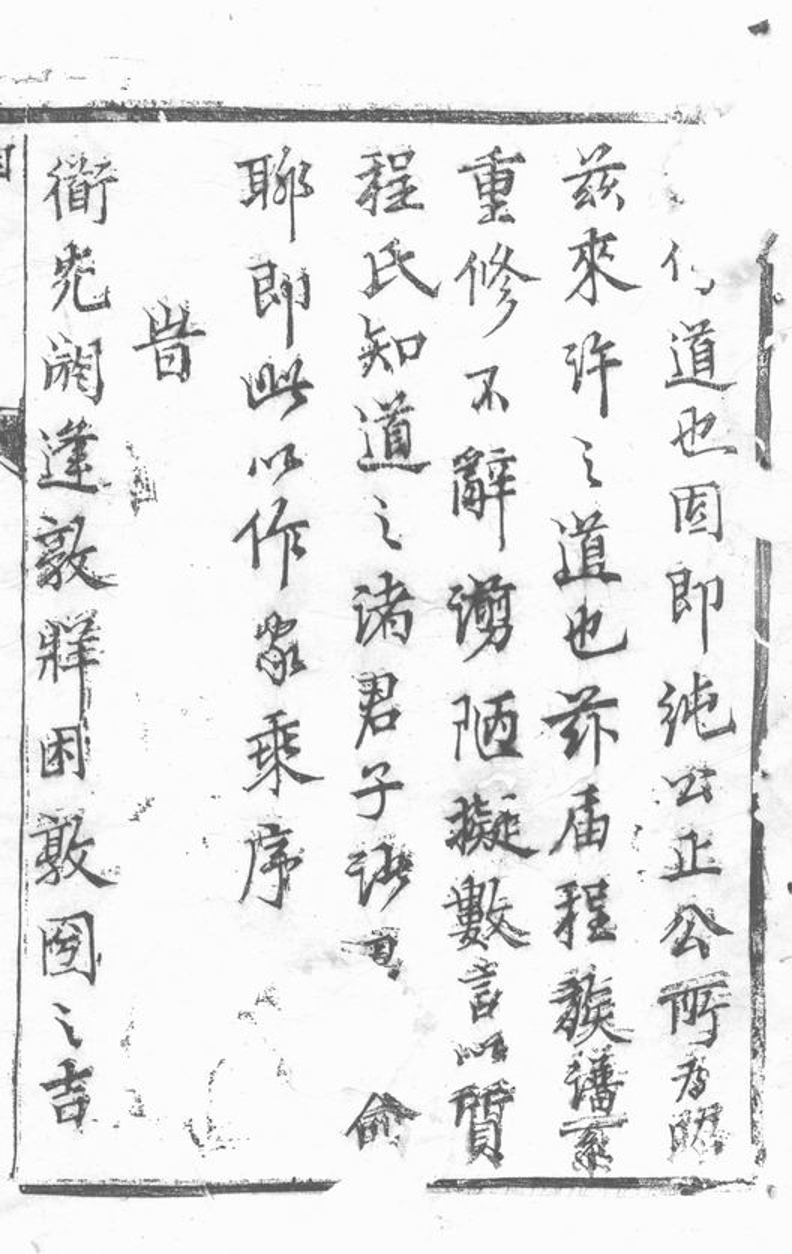 道也因即純公正公所為昭
茲來許之道也茲届程族譜系
重修不辭謭陋擬數言以質
程氏知道之諸君子 僉
聊即此以作家乘序
旹
閼逢敦牂困敦圀之吉